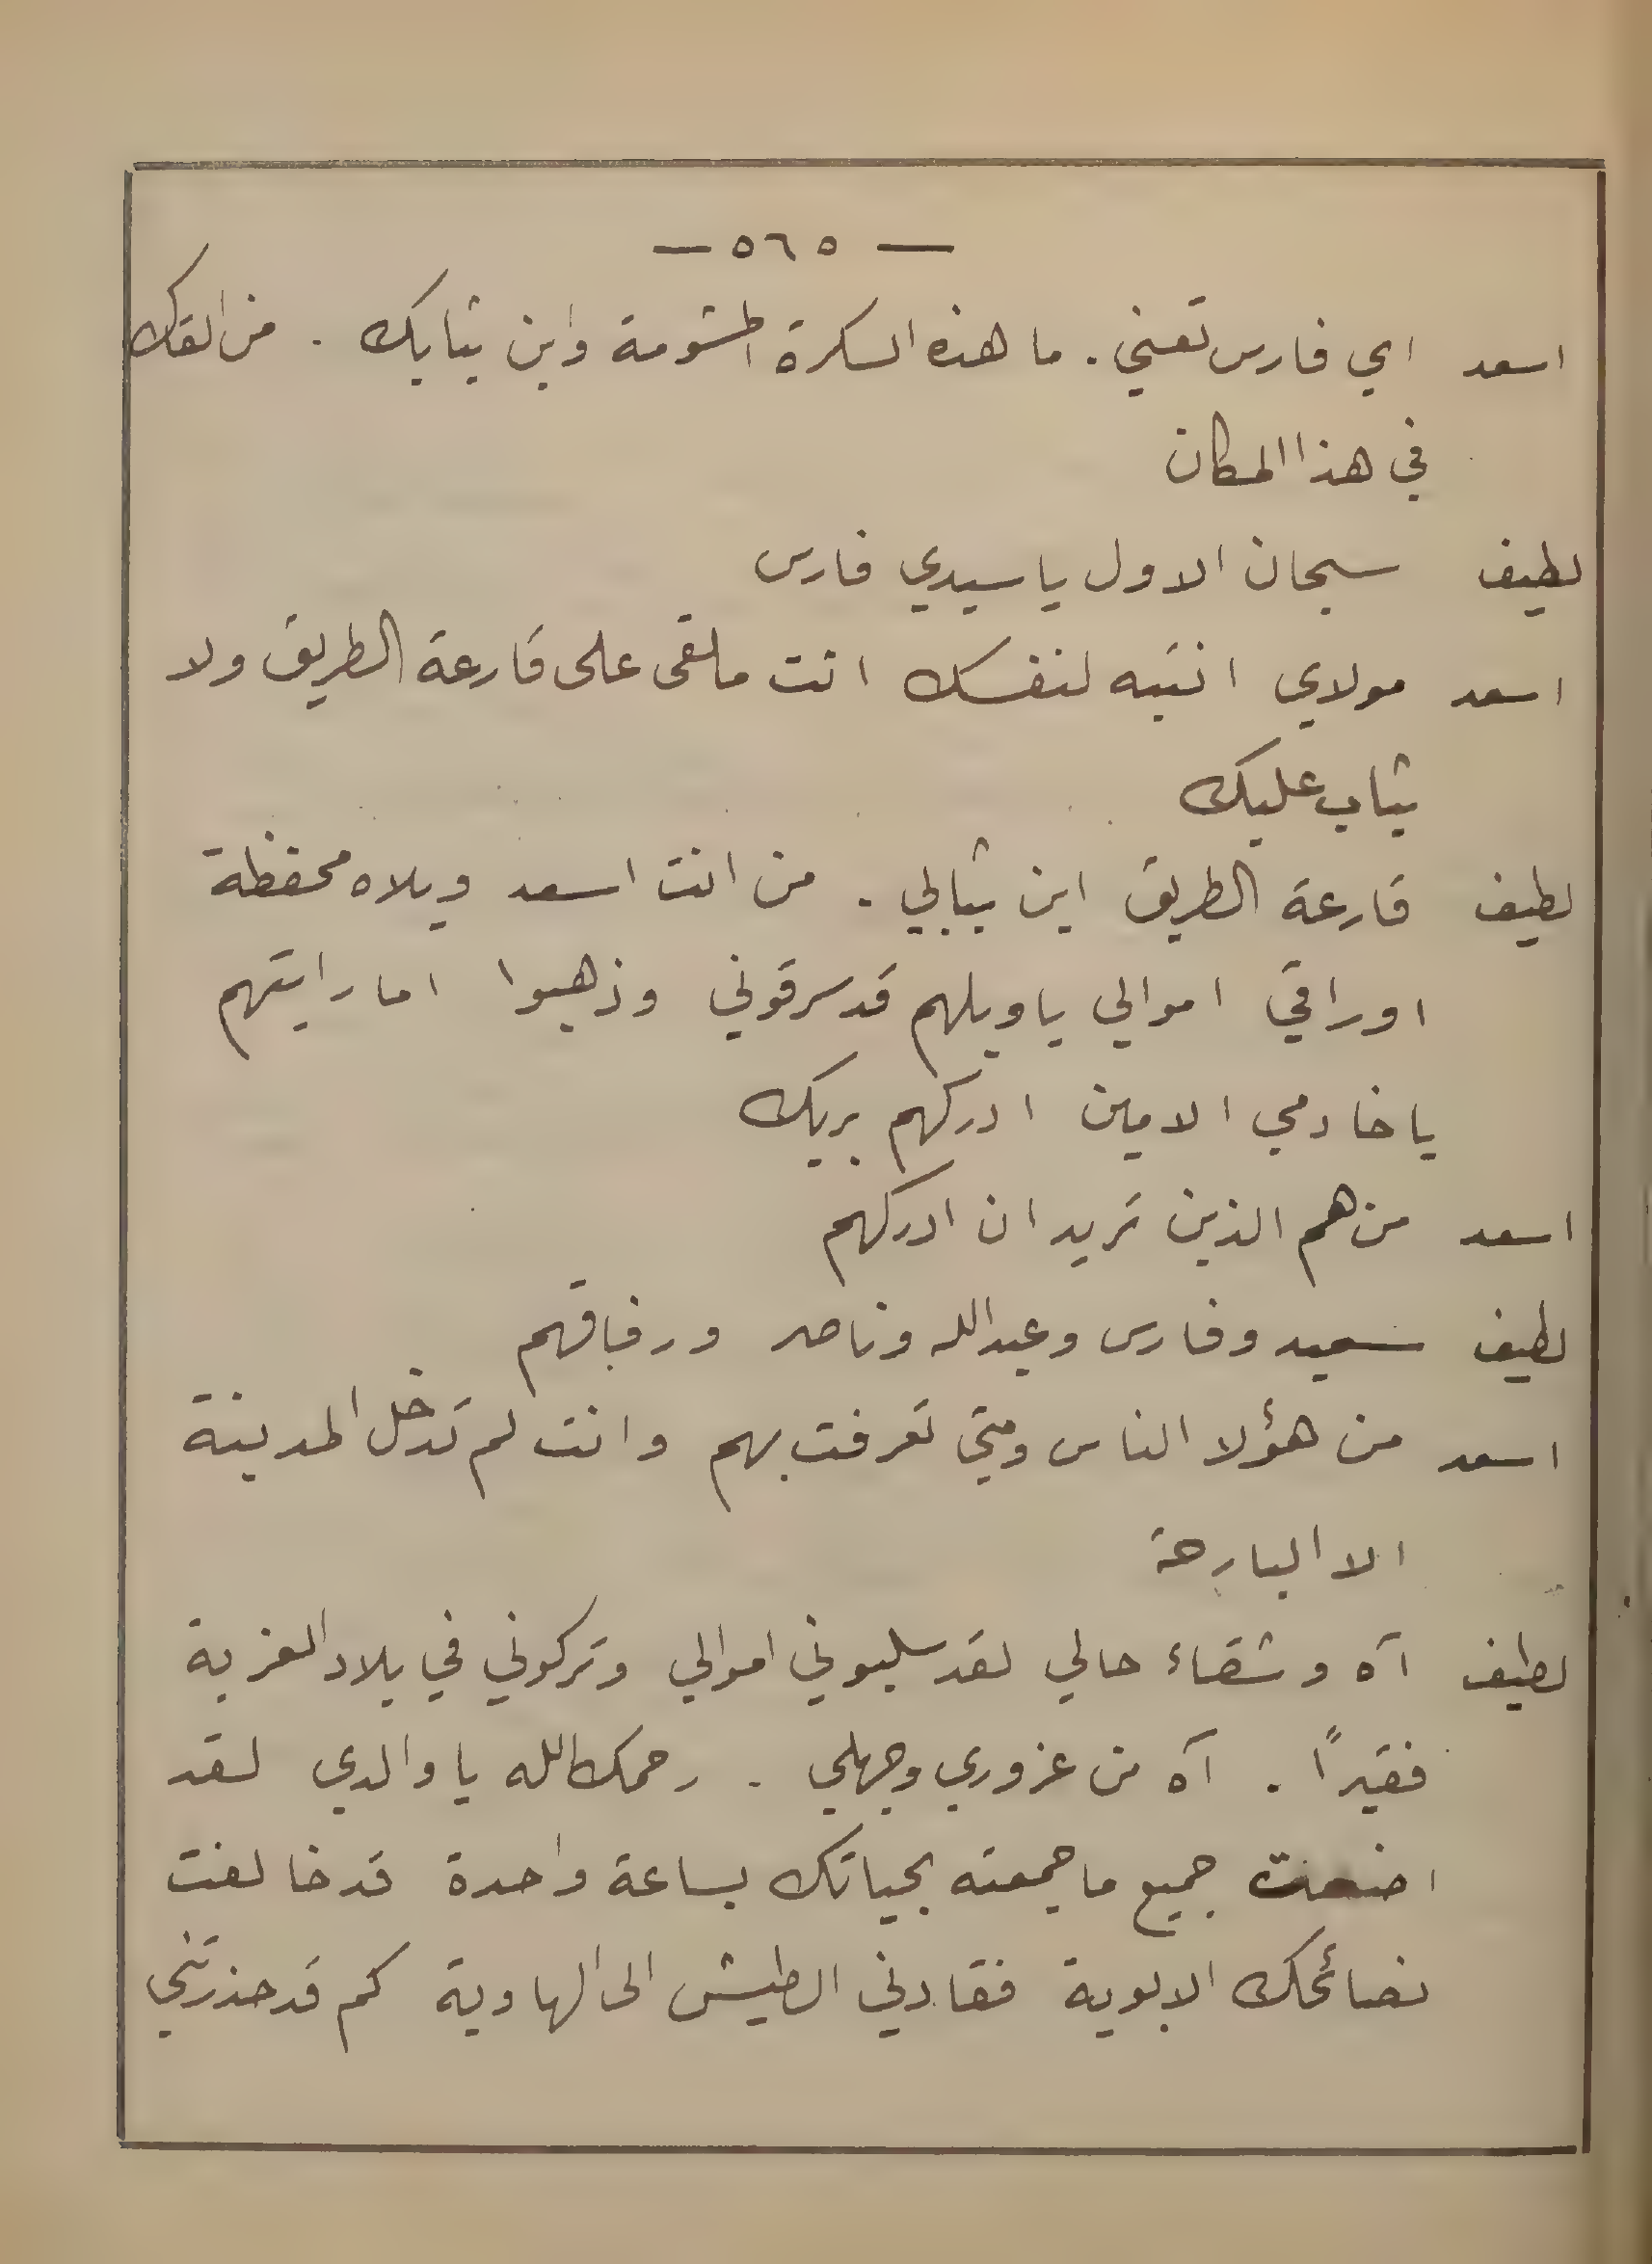 — ٥٦٥ —
اسعد اي فارس تعني . ما هذه السكرة المشومة واين ثيابك . من القاك
في هذا المكان
لطيف سبحان الاول يا سيدي فارس
اسعد مولاي انتبه لنفسك انت ملقى على قارعة الطريق ولا
ثياب عليك
لطيف قارعة الطريق اين ثيابي . من انت اسعد ويلاه محفظة
اوراقي اموالي يا ويلهم قد سرقوني وذهبوا اما رايتهم
يا خادمي الامين ادركهم بربك
اسعد من هم الذين تريد ان ادركهم
لطيف سعيد وفارس وعبدالله وناصر ورفاقهم
اسعد من هؤلا الناس ومتى تعرفت بهم وانت لم تدخل المدينة
الا البارحة
لطيف آه وشقاء حالي لقد سلبوني اموالي وتركوني في بلاد الغربة
فقيرًا . آه من غروري وجهلي . رحمك الله يا والدي لقد
اضعت جميع ما جمعته بحياتك بساعة واحدة قد خالفت
نصائحك الابوية فقادني الطيش الى الهاوية كم قد حذرتني